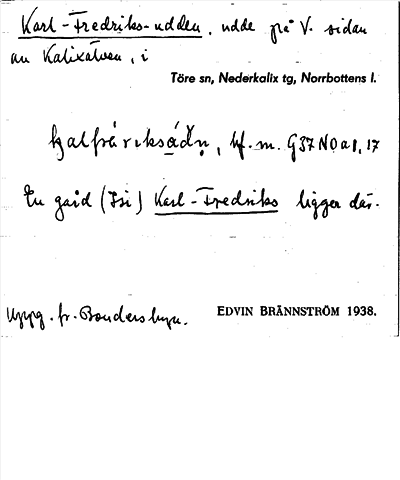 Karl-Fredriks-udden, udde på V. sidan
av Kalixälven, i
Töre sn, Nederkalix tg, Norrbottens l.
bf. m. G37 NO a 1, 17
En gård (Isi) Karl-Fredriks ligger där.
Uppg. fr. Bondersbyn.
EDVIN BRÄNNSTRÖM 1938.